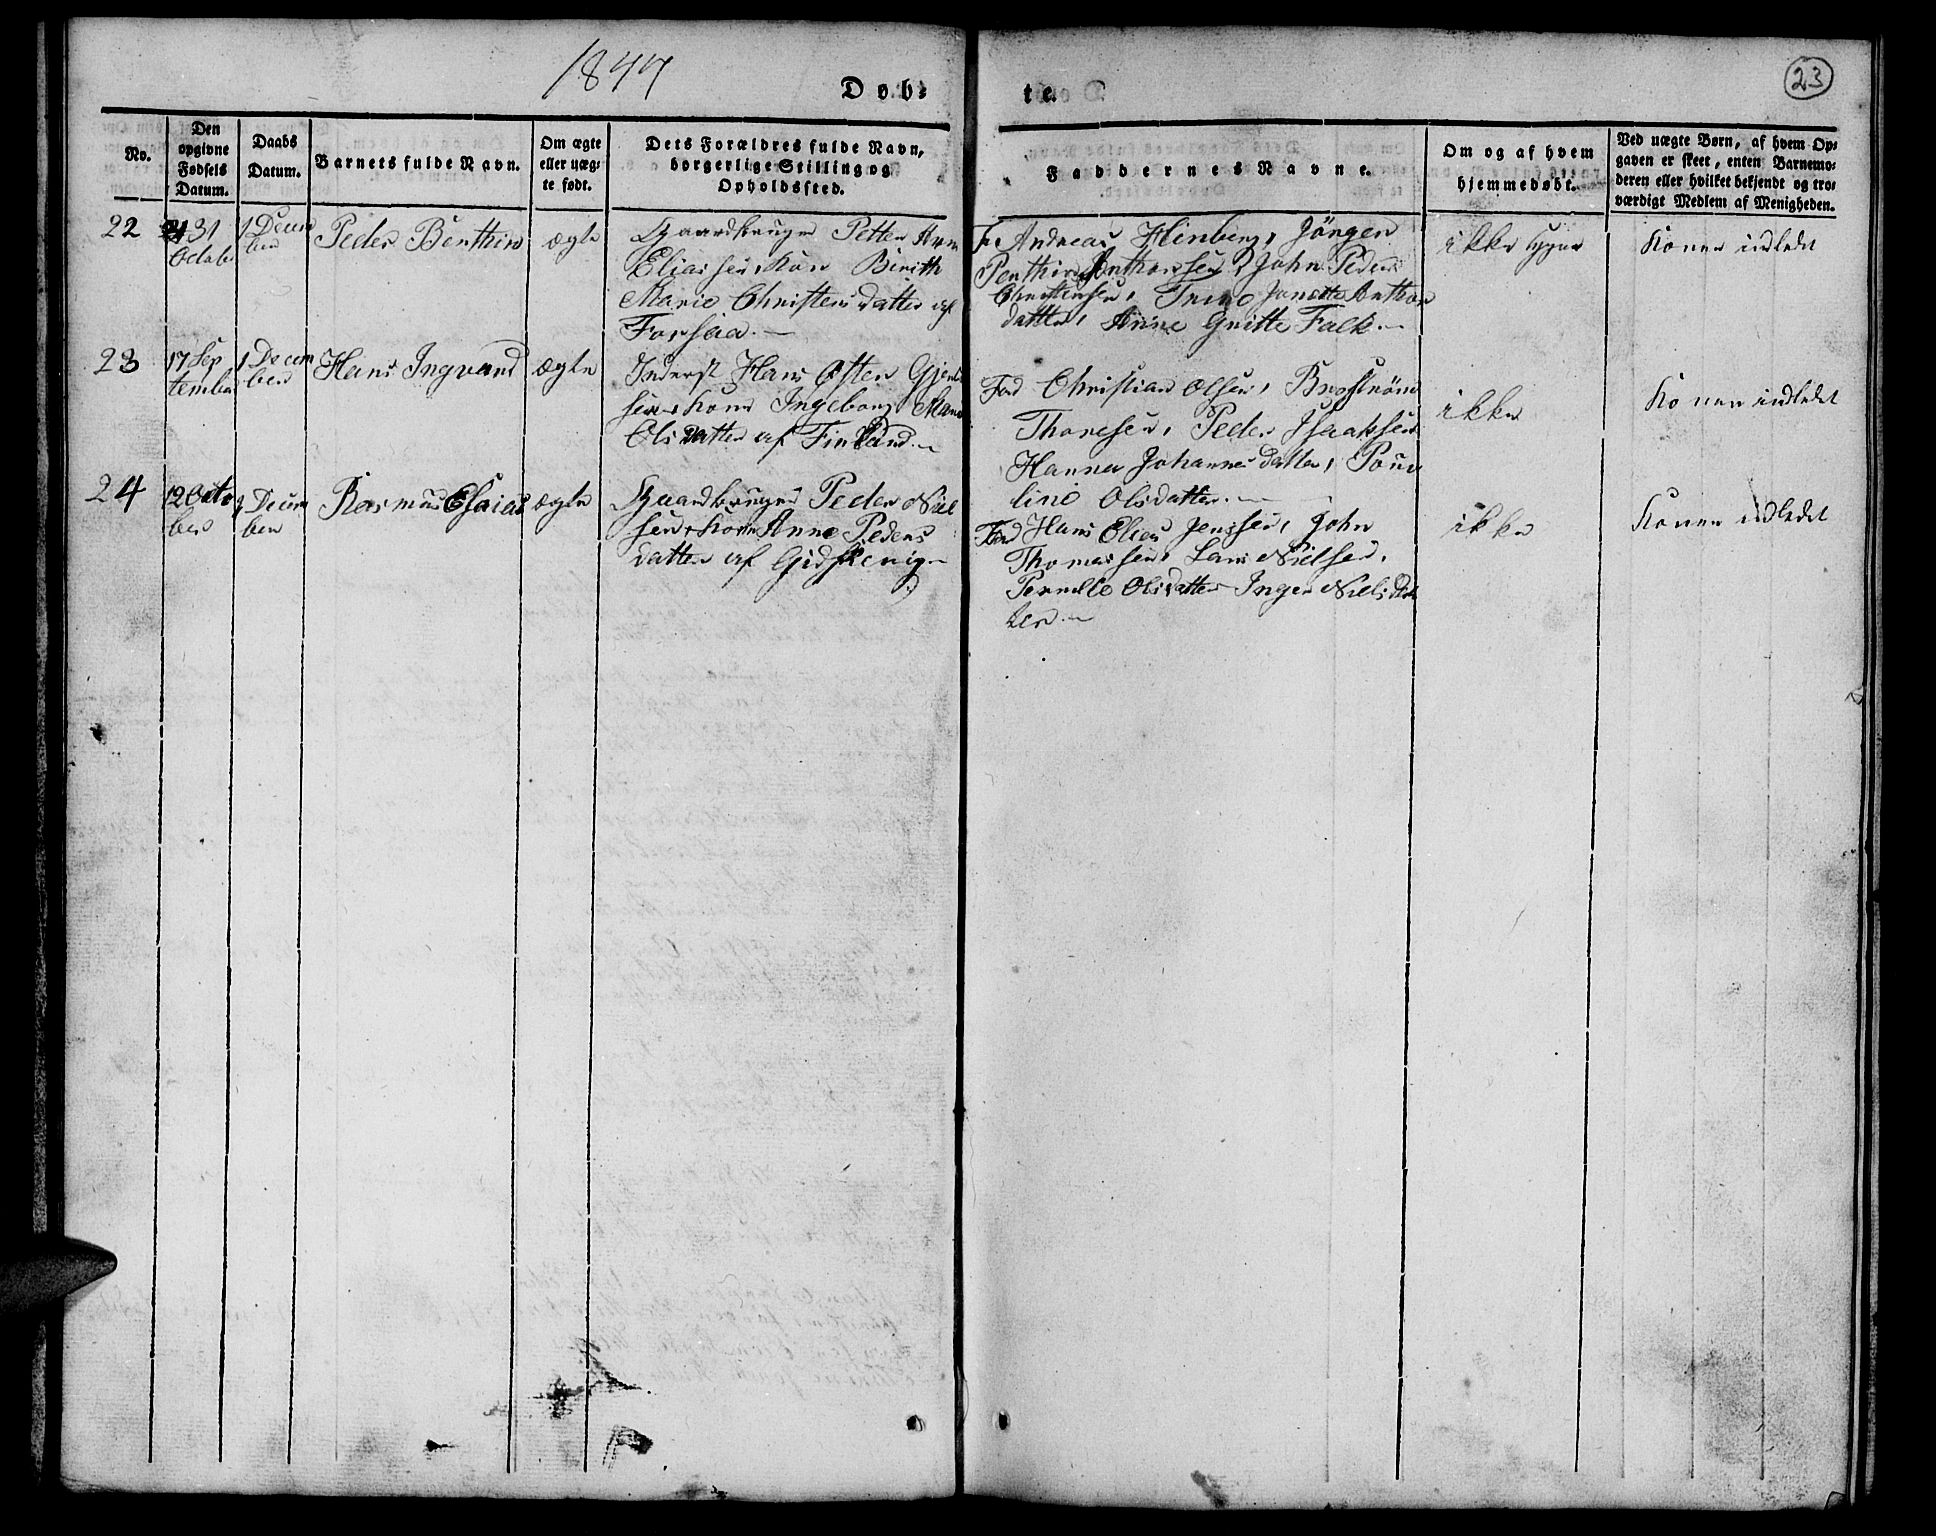 1844
Døb-
te.
23
No.
Den
opgivne
Fødsels
Datum.
Daabs
Datum.
Barnets fulde Navn.
Om ægte
eller uæg-
te født.
Dets Forældres fulde Navn,
borgerlige Stilling og
Opholdssted.
Faddernes Navne.
Om og af hvem
hjemmedøbt.
Ved uægte Børn, af hvem Op-
gaven er skeet, enten Barnemo-
deren eller hvilket bekjendt og tro-
værdigt Medlem af Menigheden.
22
31
Octob
1 Decem
ber
Peder Benthin
ægte
Gaardbruger Petter
Eliassen, Kone Birith
Marie Christensdatter af
Forsaa.
Andreas Hinberg, Jörgen
Penthin Anthonsen, John Peder
Christensen, Trine Janette Anthon
datter, Anne Gritte Falk.
ikke
Konen indledet
23
17 Sep
tember
1 Decem
ber
Hans Ingvard
ægte
Inderst Hans Østen
sen, Kone Ingeborg Mari
Olsdatter af Finland.
Fad Christian Olsen,
Thoresen, Peder Isaksen
Hanna Johannesdatter, Pau
line Olsdatter.
ikke
Konen indledet
24
12 Octo
ber
Decem
ber
Rasmus Esaias
ægte
Gaardbruger Peder Niel
sen, Kone Anne Peders
datter af Gidskenig
Fad Hans Elias Jenssen, John
Thomassen, Lars Nielsen,
Pernille Olsdatter Inger Nielsdat
ter.
ikke
Konen indledet